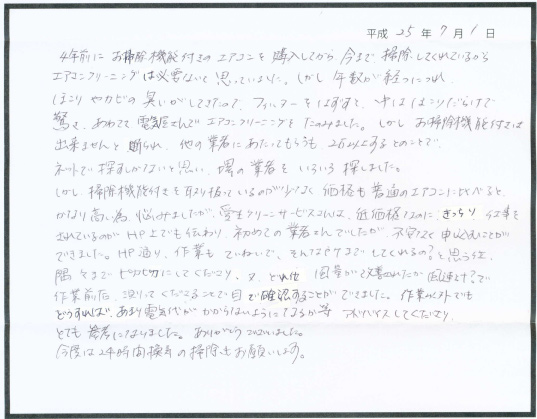 平成 25 年 7 月 1 日
4年前に お掃除機能付きの エアコンを 購入してから 今まで、掃除してくれているから
エアコンクリーニングは必要ないと 思っていました。しかし 年数が経つにつれ、
ほこりやカビの 臭いがしてきたので、フィルターをはずすと、中は ほこりだらけで
驚き、あわてて 電気屋さんで エアコンクリーニングを たのみました。しかし お掃除機能付きは
出来ませんと 断られ、他の業者に あたってもらうも、 とのことで、
ネットで 探すしかないと思い、堺の業者を いろいろ 探しました。
しかし、掃除機能付きを取り扱っているのが少なく 価格も 普通のエアコンに比べると、
かなり高い為、悩みましたが、 クリーンサービスさんは、低価格なのに、きっちり 仕事を
されているのが HP上でも伝わり、初めての 業者さんでしたが、不安なく 申し込むことが
できました。HP通り、作業も ていねいで、そんなところまで してくれるの？と 思うくらい、
隅々まで ピカピカにしてくださり、又、どれ位 風量が 改善されたか 風速計？で
作業前后、測ってくださることで 目で確認することが できました。作業以外でも
どうすれば、あまり電気代が かからないように なるか等 アドバイスしてくださり、
とても 参考になりました。ありがとうございました。
今度は 24時間換気の掃除も お願いします。